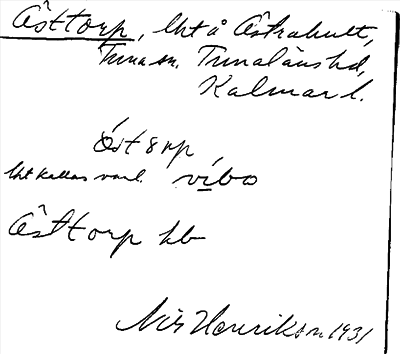 Åsttorp, lht å Åstrahult,
Tuna sn. Tunaläns hd,
Kalmar l.
óstorp
lht kallas vanl. vibo
Åsttorp kb
Nils Henrikson 1931